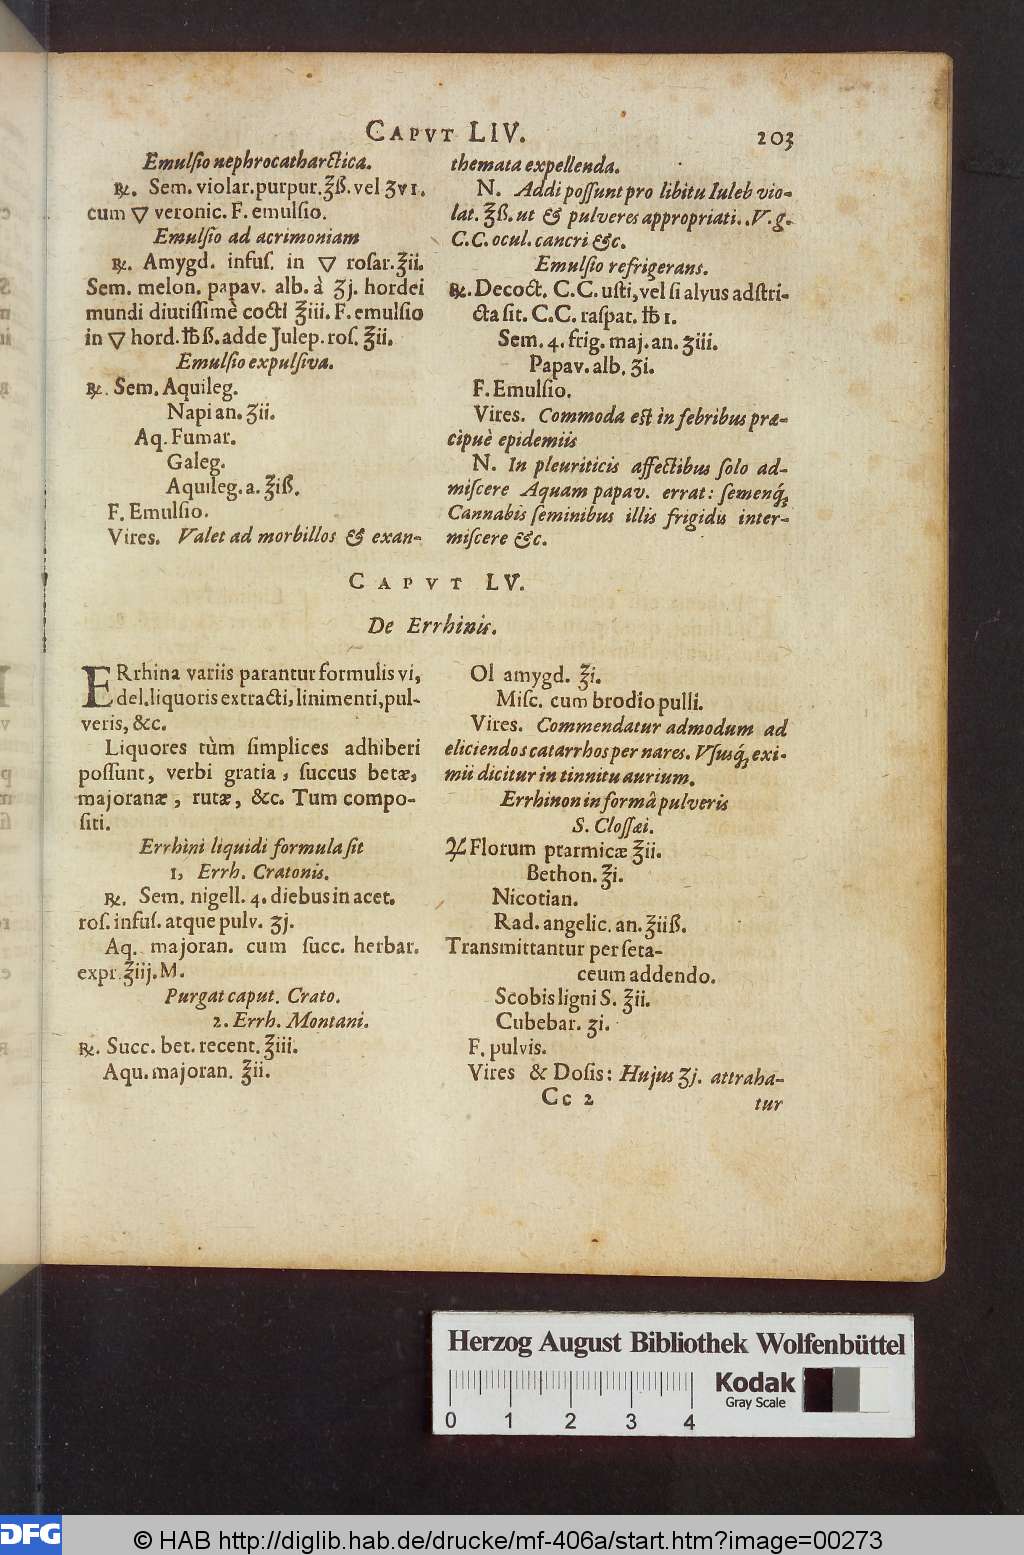 CAPVT LIV. 203
Emulſio nephrocatharctica.
℞. Sem. violar. purpur. ℥ß. vel ʒvı.
cum 🜄 veronic. F. emulſio.
Emulſio ad acrimoniam
℞. Amygd. infuſ. in 🜄 roſar. ℥ii.
Sem. melon. papav. alb. à ʒj. hordei
mundi diutiſſimè cocti ℥iii. F. emulſio
in 🜄 hord. ℔ß. adde Julep. roſ. ℥ii.
Emulſio expulſiva.
℞. Sem. Aquileg.
Napi an. ʒii.
Aq. Fumar.
Galeg.
Aquileg. a. ℥iß.
F. Emulſio.
Vires. Valet ad morbillos & exan-
themata expellenda.
N. Addi poſſunt pro libitu Iuleb vio-
lat. ℥ß. ut & pulveres appropriati. V. g.
C.C. ocul. cancri &c.
Emulſio refrigerans.
℞. Decoct. C.C. uſti, vel ſi alvus adſtri-
cta ſit. C.C. raſpat. ℔ı.
Sem. 4. frig. maj. an. ʒiii.
Papav. alb. ʒi.
F. Emulſio.
Vires. Commoda eſt in febribus præ-
cipuè epidemiis
N. In pleuriticis affectibus ſolo ad-
miſcere Aquam papav. errat: ſemenq́;
Cannabis ſeminibus illis frigidis inter-
miſcere &c.
CAPVT LV.
De Errhinis.
ERrhina variis parantur formulis vi,
del. liquoris extracti, linimenti, pul-
veris, &c.
Liquores tùm ſimplices adhiberi
poſſunt, verbi gratia, ſuccus betæ,
majoranæ, rutæ, &c. Tum compo-
ſiti.
Errhini liquidi formula ſit
1, Errh. Cratonis.
℞. Sem. nigell. 4. diebus in acet.
roſ. infuſ. atque pulv. ʒj.
Aq. majoran. cum ſucc. herbar.
expr. ℥iij. M.
Purgat caput. Crato.
2. Errh. Montani.
℞. Succ. bet. recent. ℥iii.
Aqu. majoran. ℥ii.
Ol amygd. ℥i.
Miſc. cum brodio pulli.
Vires. Commendatur admodum ad
eliciendos catarrhos per nares. Vſusq́; exi-
mii dicitur in tinnitu aurium.
Errhinon in formâ pulveris
S. Cloſſæi.
♃ Florum ptarmicæ ℥ii.
Bethon. ℥i.
Nicotian.
Rad. angelic. an. ℥iiß.
Transmittantur per ſeta-
ceum addendo.
Scobis ligni S. ℥ii.
Cubebar. ʒi.
F. pulvis.
Vires & Doſis: Hujus ʒj. attraha-
Cc 2 tur
Herzog August Bibliothek Wolfenbüttel
Kodak
Gray Scale
0 1 2 3 4
DFG
© HAB http://diglib.hab.de/drucke/mf-406a/start.htm?image=00273